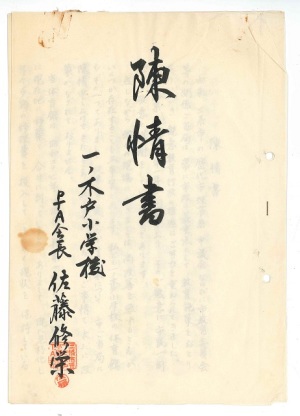 陳情書
一ノ木戸小学校
PTA会長 佐藤修栄